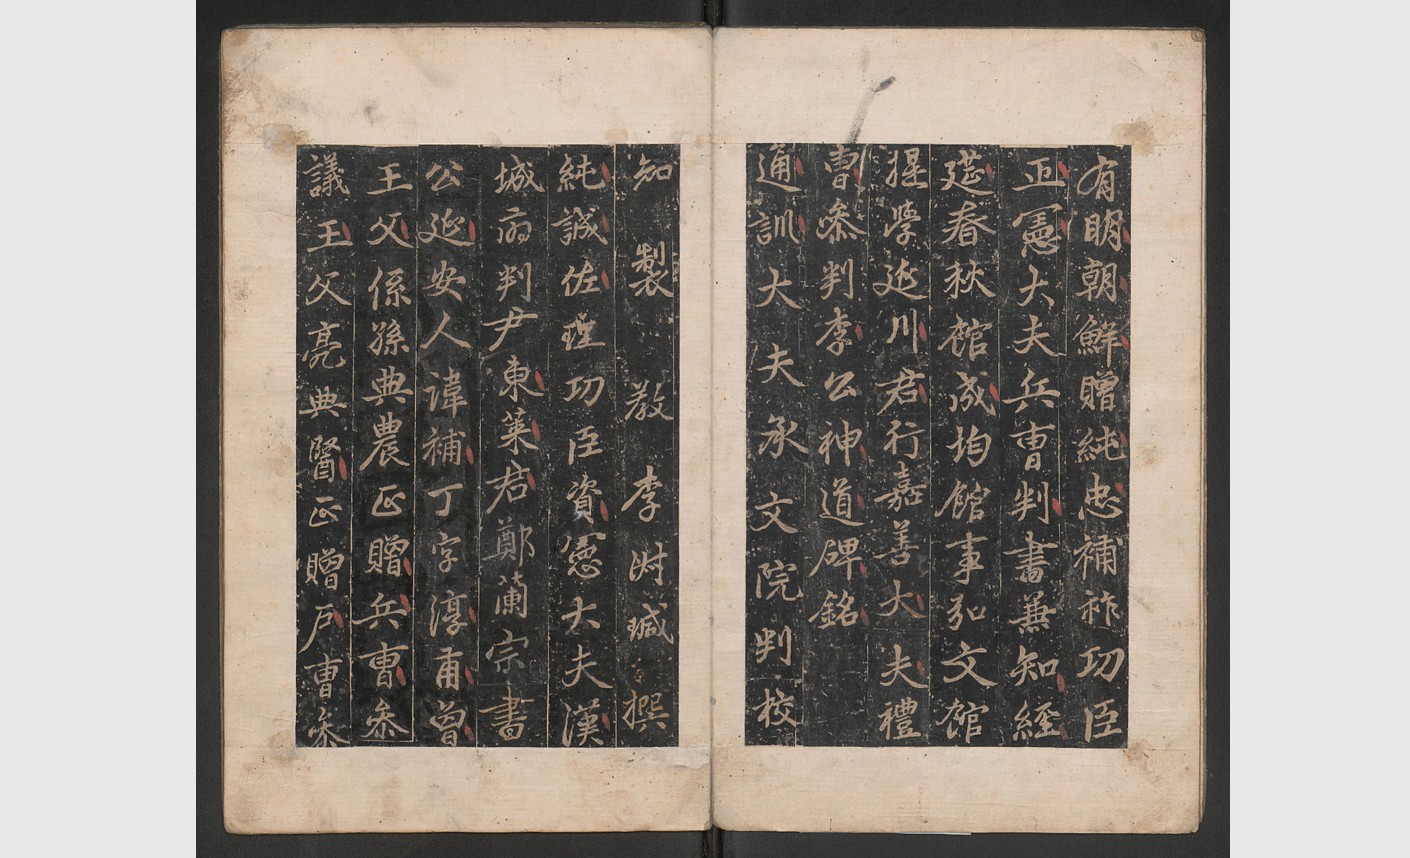 有明朝鮮贈純忠補祚功臣
正憲大夫兵曹判書兼知經
筵春秋館成均館事弘文館
提學延川君行嘉善大夫禮
曹參判李公神道碑銘
通訓大夫承文院判校
知製教李湛誠撰
純誠佐理功臣資憲大夫漢
城府判尹東萊君鄭蘭宗書
公延安人諱補丁字淳甫曾
王父係孫典農正贈兵曹參
議王父亮典醫正贈戶曹參